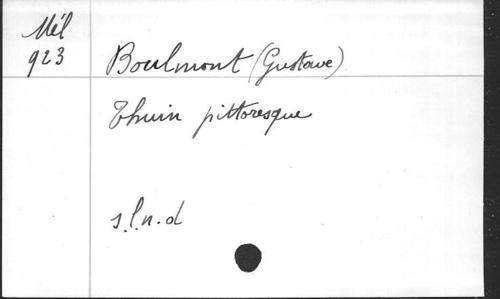 Mél
923
Boulmont (Gustave)
Thuin pittoresque
s.l.n.d